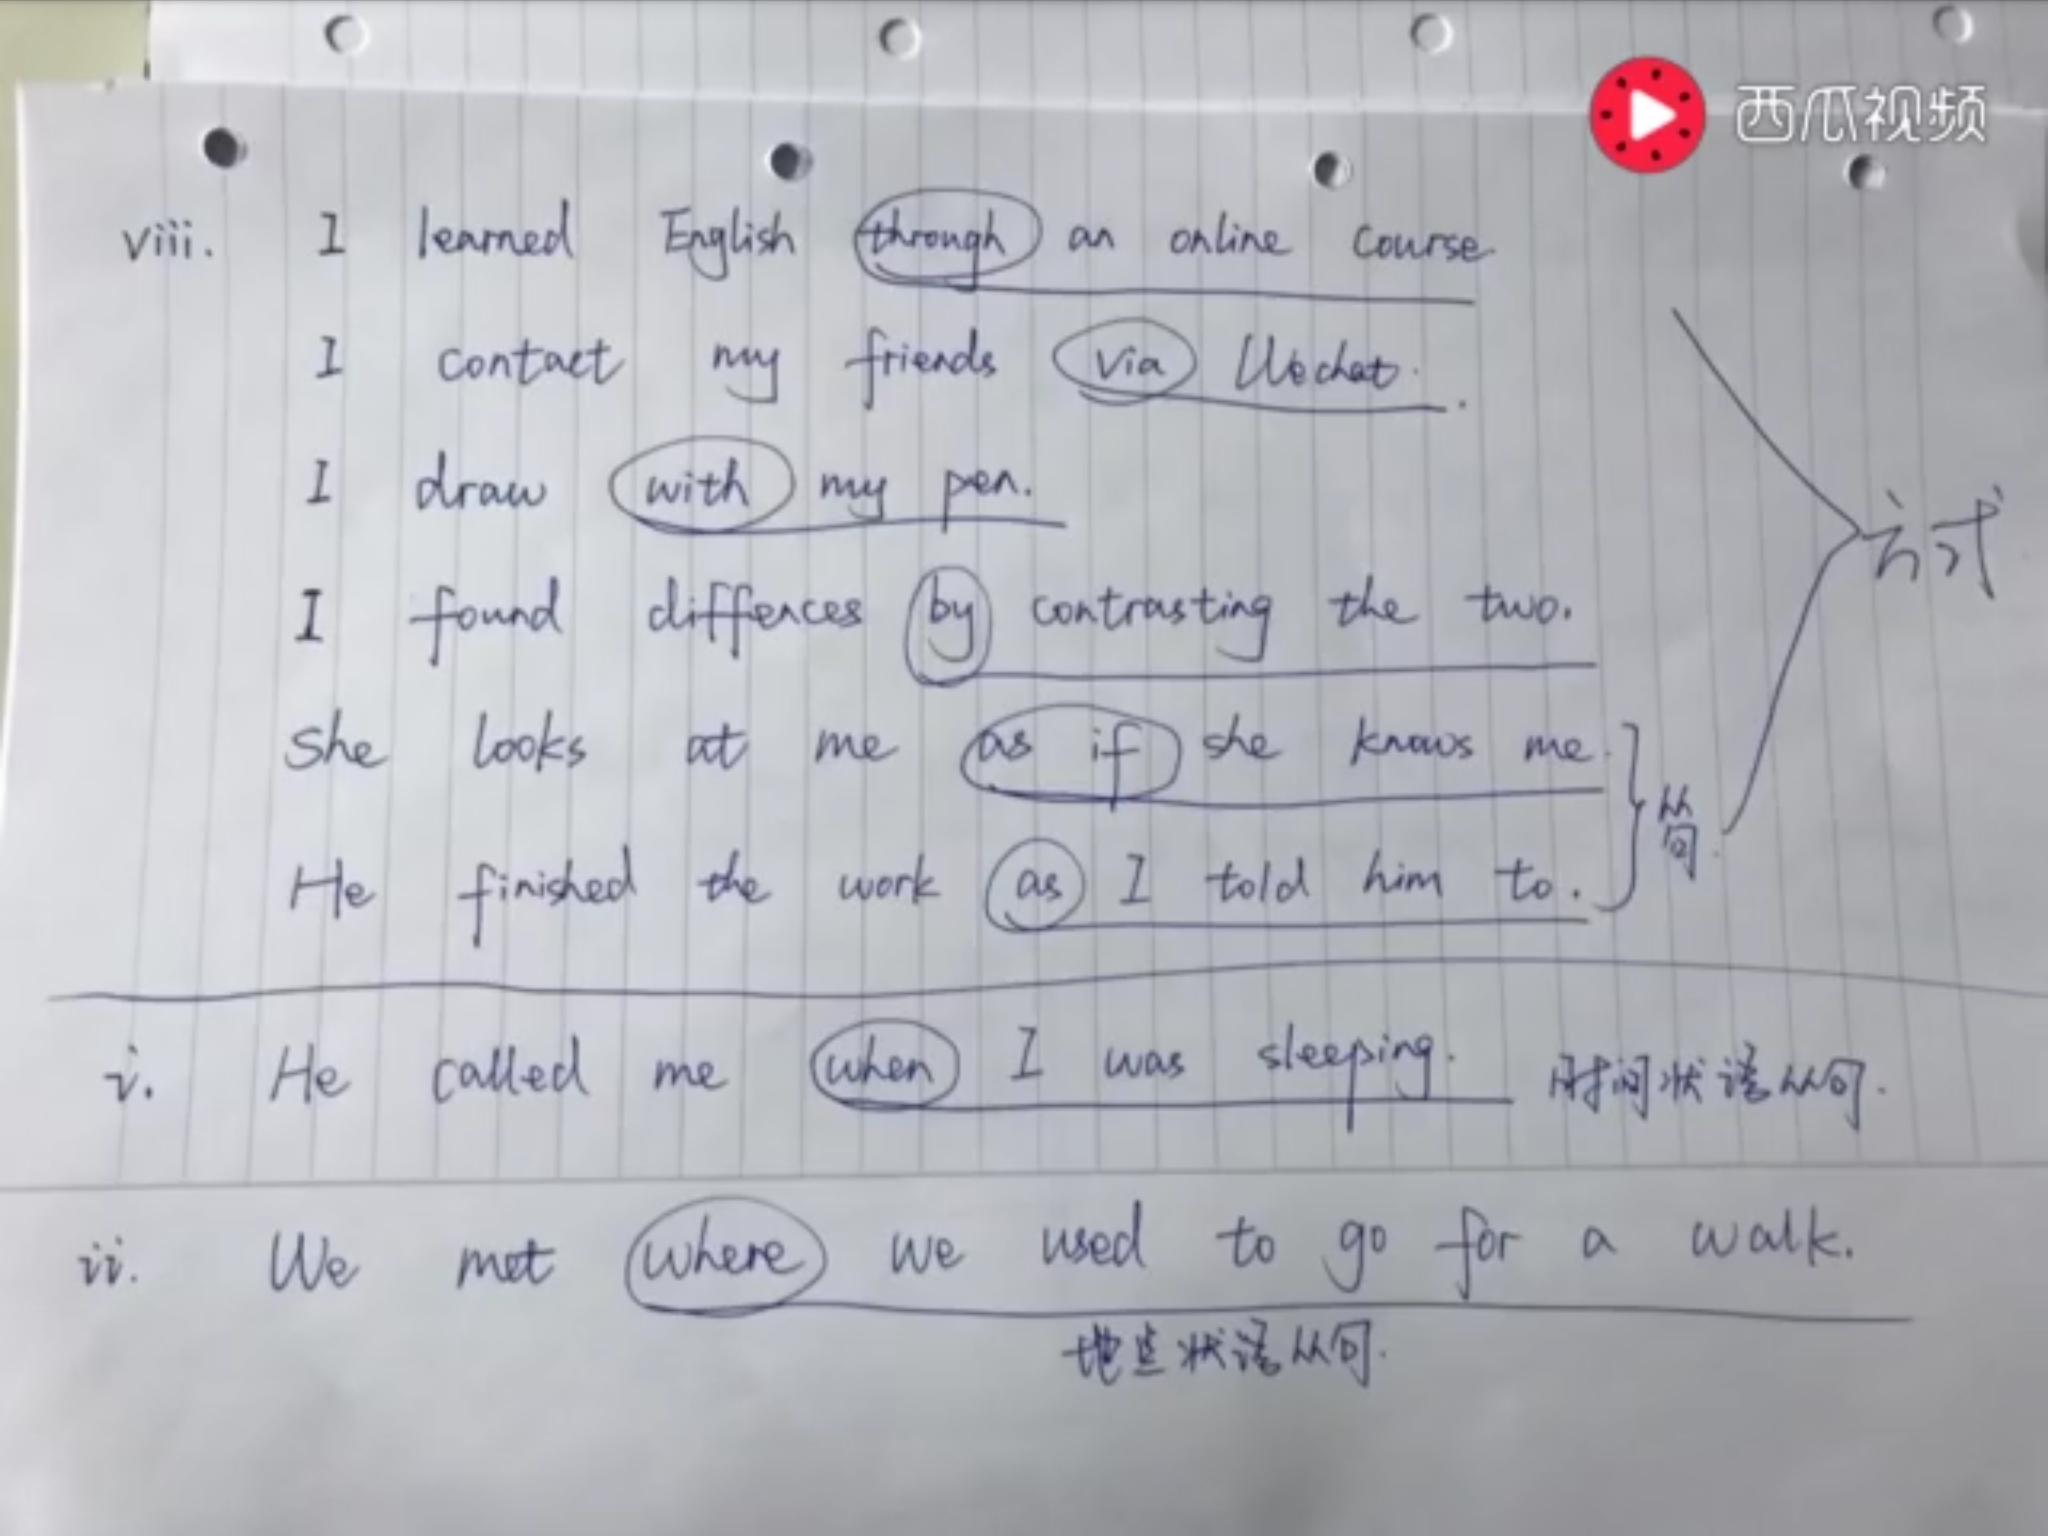 西瓜视频
viii. I learned English through an online course.
I contact my friends via Wechat.
I draw with my pen.
方式
I found diffences by contrasting the two.
She looks at me as if she knows me.
从句.
He finished the work as I told him to.
i. He called me when I was sleeping. 时间状语从句.
ii. We met where we used to go for a walk.
地点状语从句.